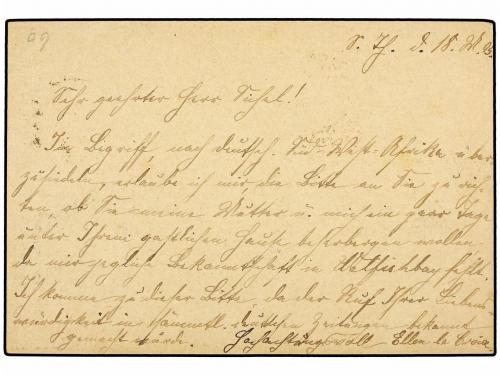 99
S. Th. d. 18. XI. 95.
Sehr geehrter Herr Sichel!
Im Begriff, nach deutsch. Süd-West-Afrika über
zusiedeln, erlaube ich mir die Bitte an Sie zu rich-
ten, ob Sie meine Mutter u. mich ein paar Tage
unter Ihrem gastlichen Hause beherbergen wollen
da mir jegliche Bekanntschaft in Walfischbay fehlt.
Ich komme zu dieser Bitte, da der Ruf Ihrer Liebens-
würdigkeit in sämmtl. deutschen Zeitungen bekannt
gemacht wurde. Hochachtungsvoll Ellen la